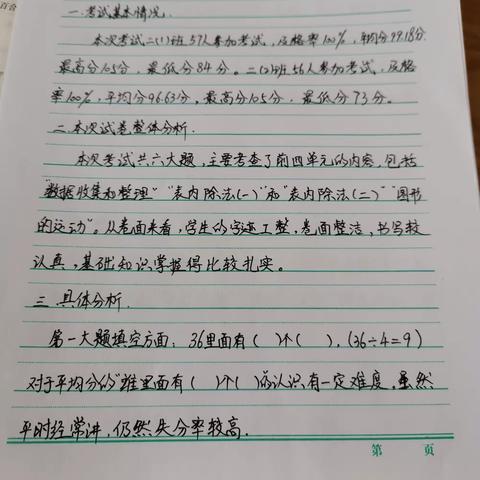 一.考试基本情况.
本次考试二(1)班57人参加考试,及格率100%,平均分99.18分.
最高分105分,最低分84分。二(2)班56人参加考试,及格
率100%,平均分96.63分,最高分105分,最低分73分。
二.本次试卷整体分析.
本次考试共六大题,主要考查了前四单元的内容,包括
“数据收集和整理”“表内除法(一)”和“表内除法(二)”“图形
的运动”。从卷面来看,学生的字迹工整,卷面整洁,书写较
认真,基础知识掌握得比较扎实。
三.具体分析.
第一大题填空方面:36里面有( )个( ).(36÷4=9)
对于平均分的“谁里面有( )个( )”的认识有一定难度。虽然
平时经常讲,仍然失分率较高.
第 页